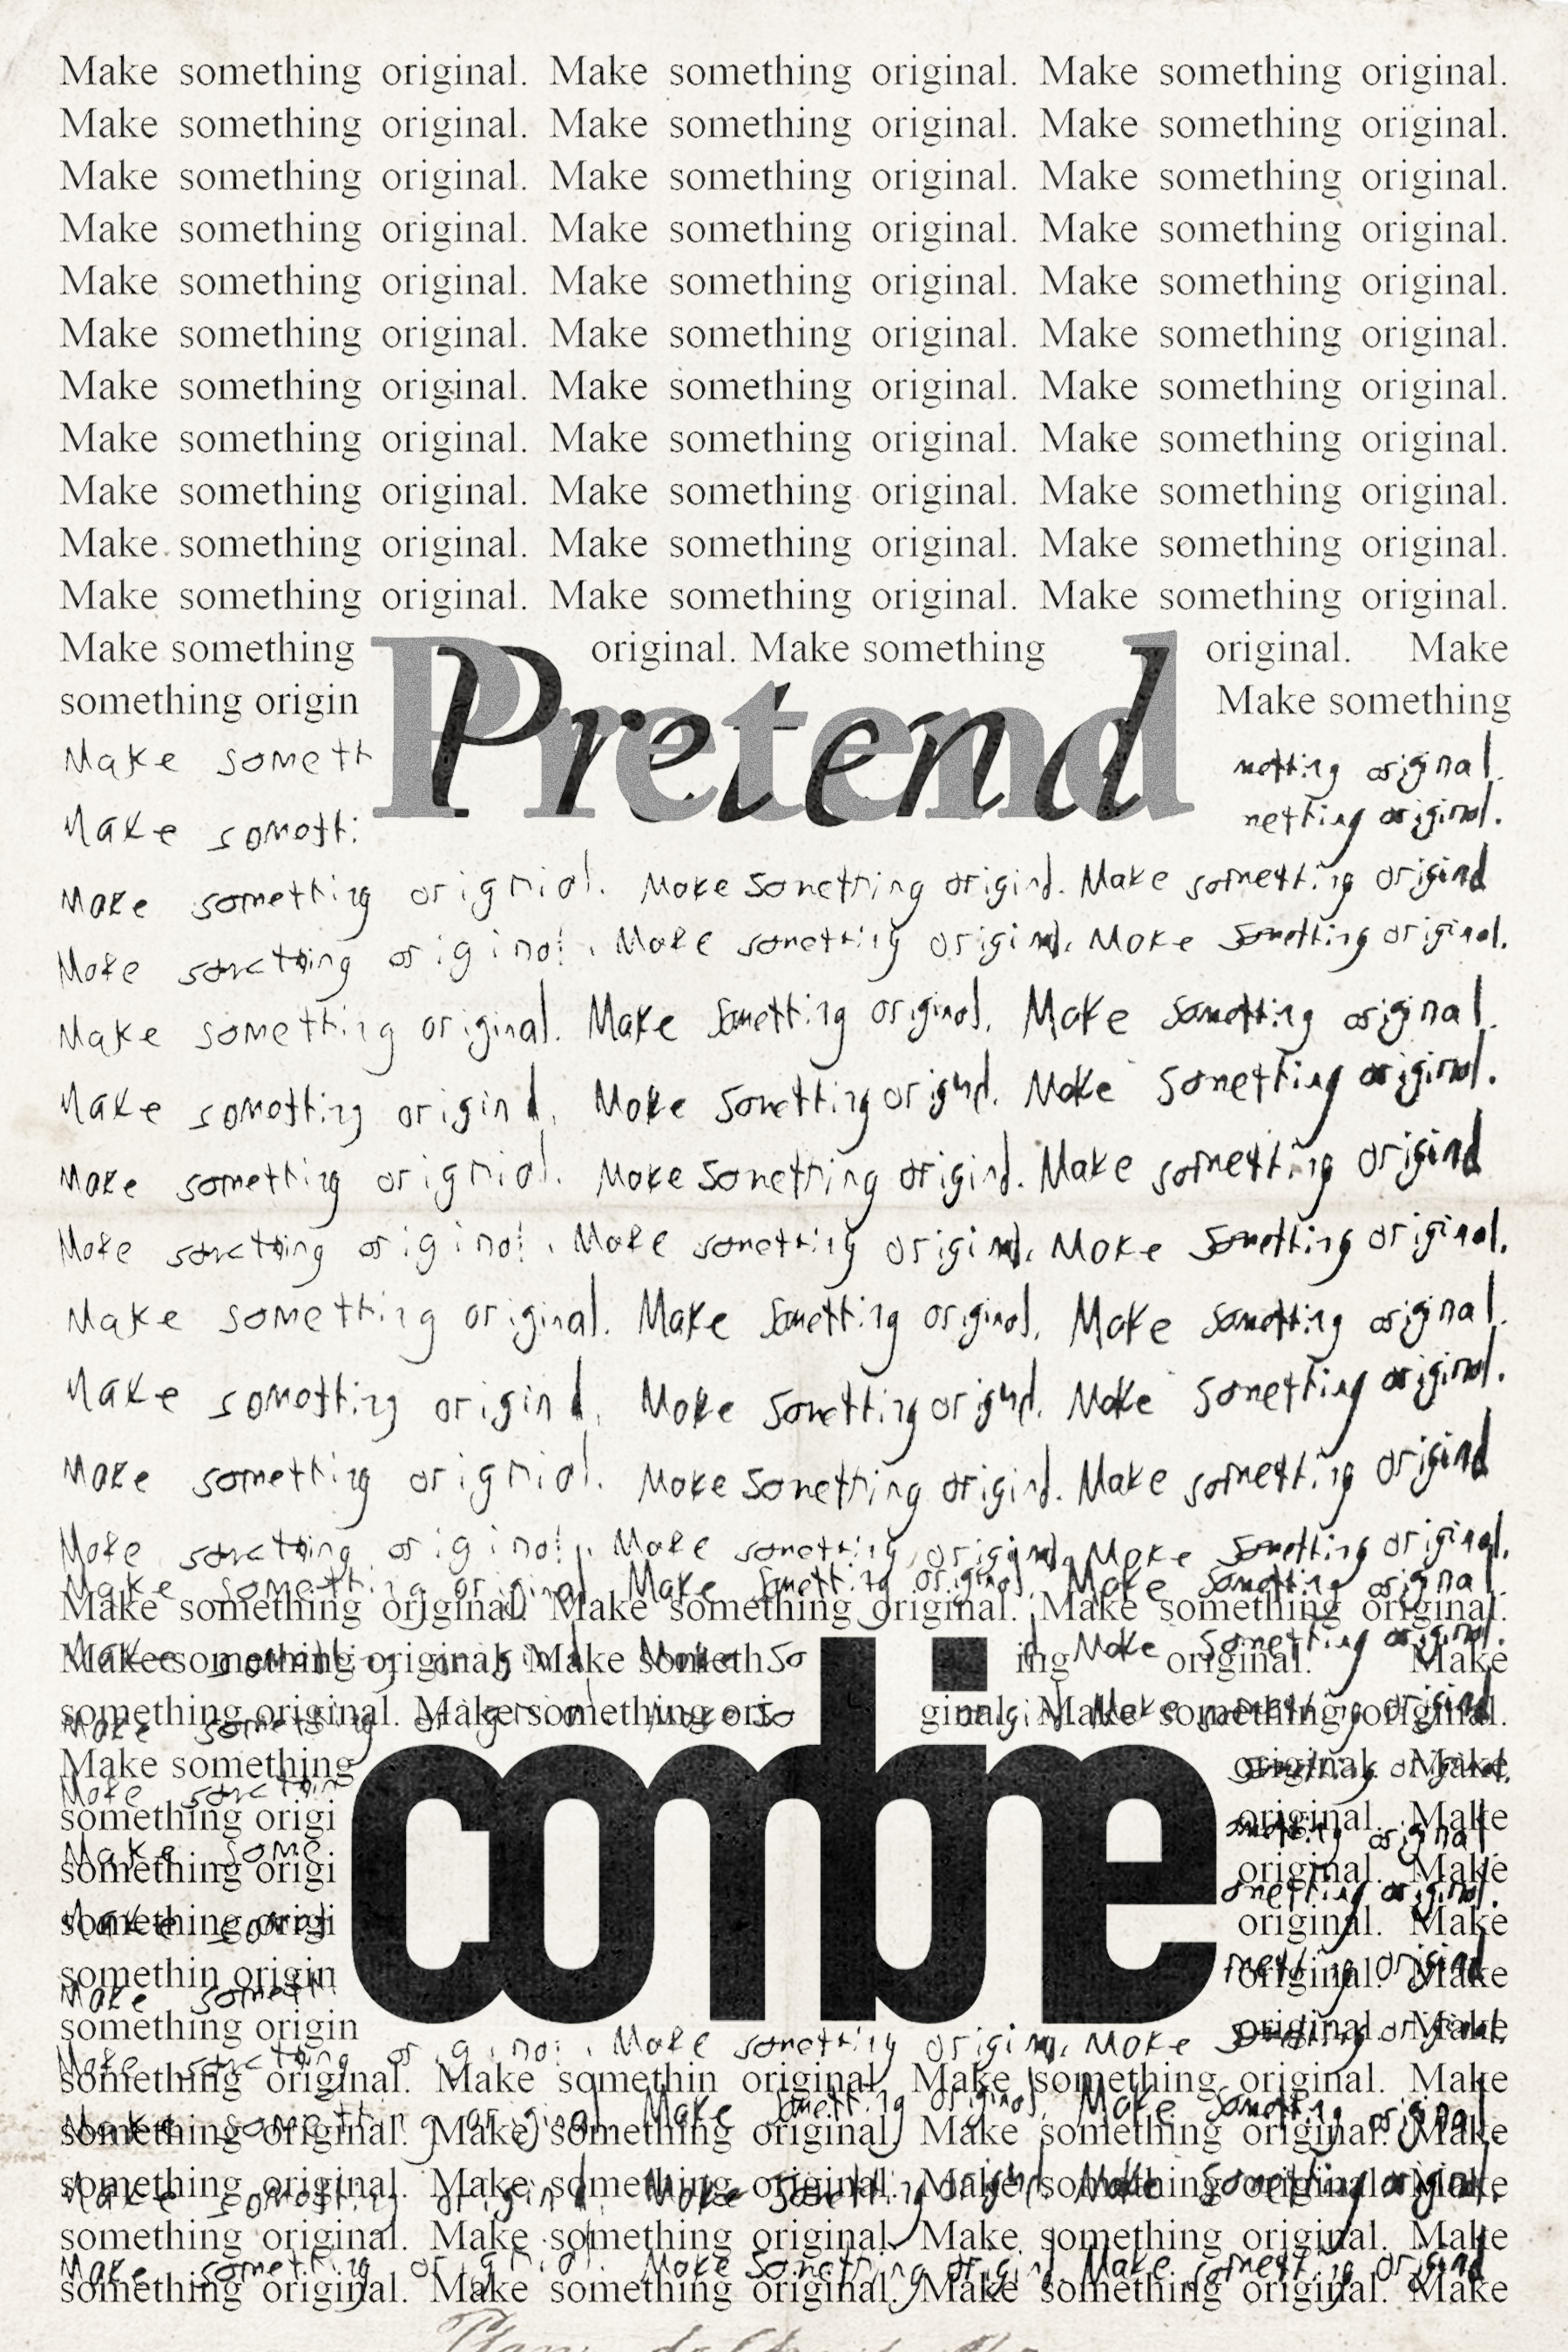 Make something original. Make something original. Make something original.
Make something original. Make something original. Make something original.
Make something original. Make something original. Make something original.
Make something original. Make something original. Make something original.
Make something original. Make something original. Make something original.
Make something original. Make something original. Make something original.
Make something original. Make something original. Make something original.
Make something original. Make something original. Make something original.
Make something original. Make something original. Make something original.
Make something original. Make something original. Make something original.
Make something original. Make something original. Make something original.
Make something original. Make something original. Make
something origin Make something
Pretend
Make someth original.
Make original.
Make something original. Make something original. Make something original
Make something original. Make something original. Make something original.
Make something original. Make something original. Make something original.
Make something original. Make something original. Make something original.
Make something original. Make something original. Make something original
Make something original. Make something original. Make something original.
Make something original. Make something original. Make something original.
Make something original. Make something original. Make something original.
Make something original. Make something original. Make something original
Make something original. Make something original. Make something original.
Make something original. Make something original. Make something original.
Make something original. Make something original. Make something original.
Make something original. Make someth ing original. Make
something original. Make something ori ginal. Make something original.
Make something original. Make
something origi original. Make
something origi original. Make
something origi original. Make
somethin origin original. Make
something origin original. Make
combine
Make something original. Make something original. Make something original.
something original. Make somethin original. Make something original. Make
Make something original. Make something original. Make something original.
something original. Make something original. Make something original. Make
something original. Make something original. Make something original. Make
Make something original. Make something original. Make something original.
something original. Make something original. Make something original. Make
Make something original. Make something original. Make something original
something original. Make something original. Make something original. Make